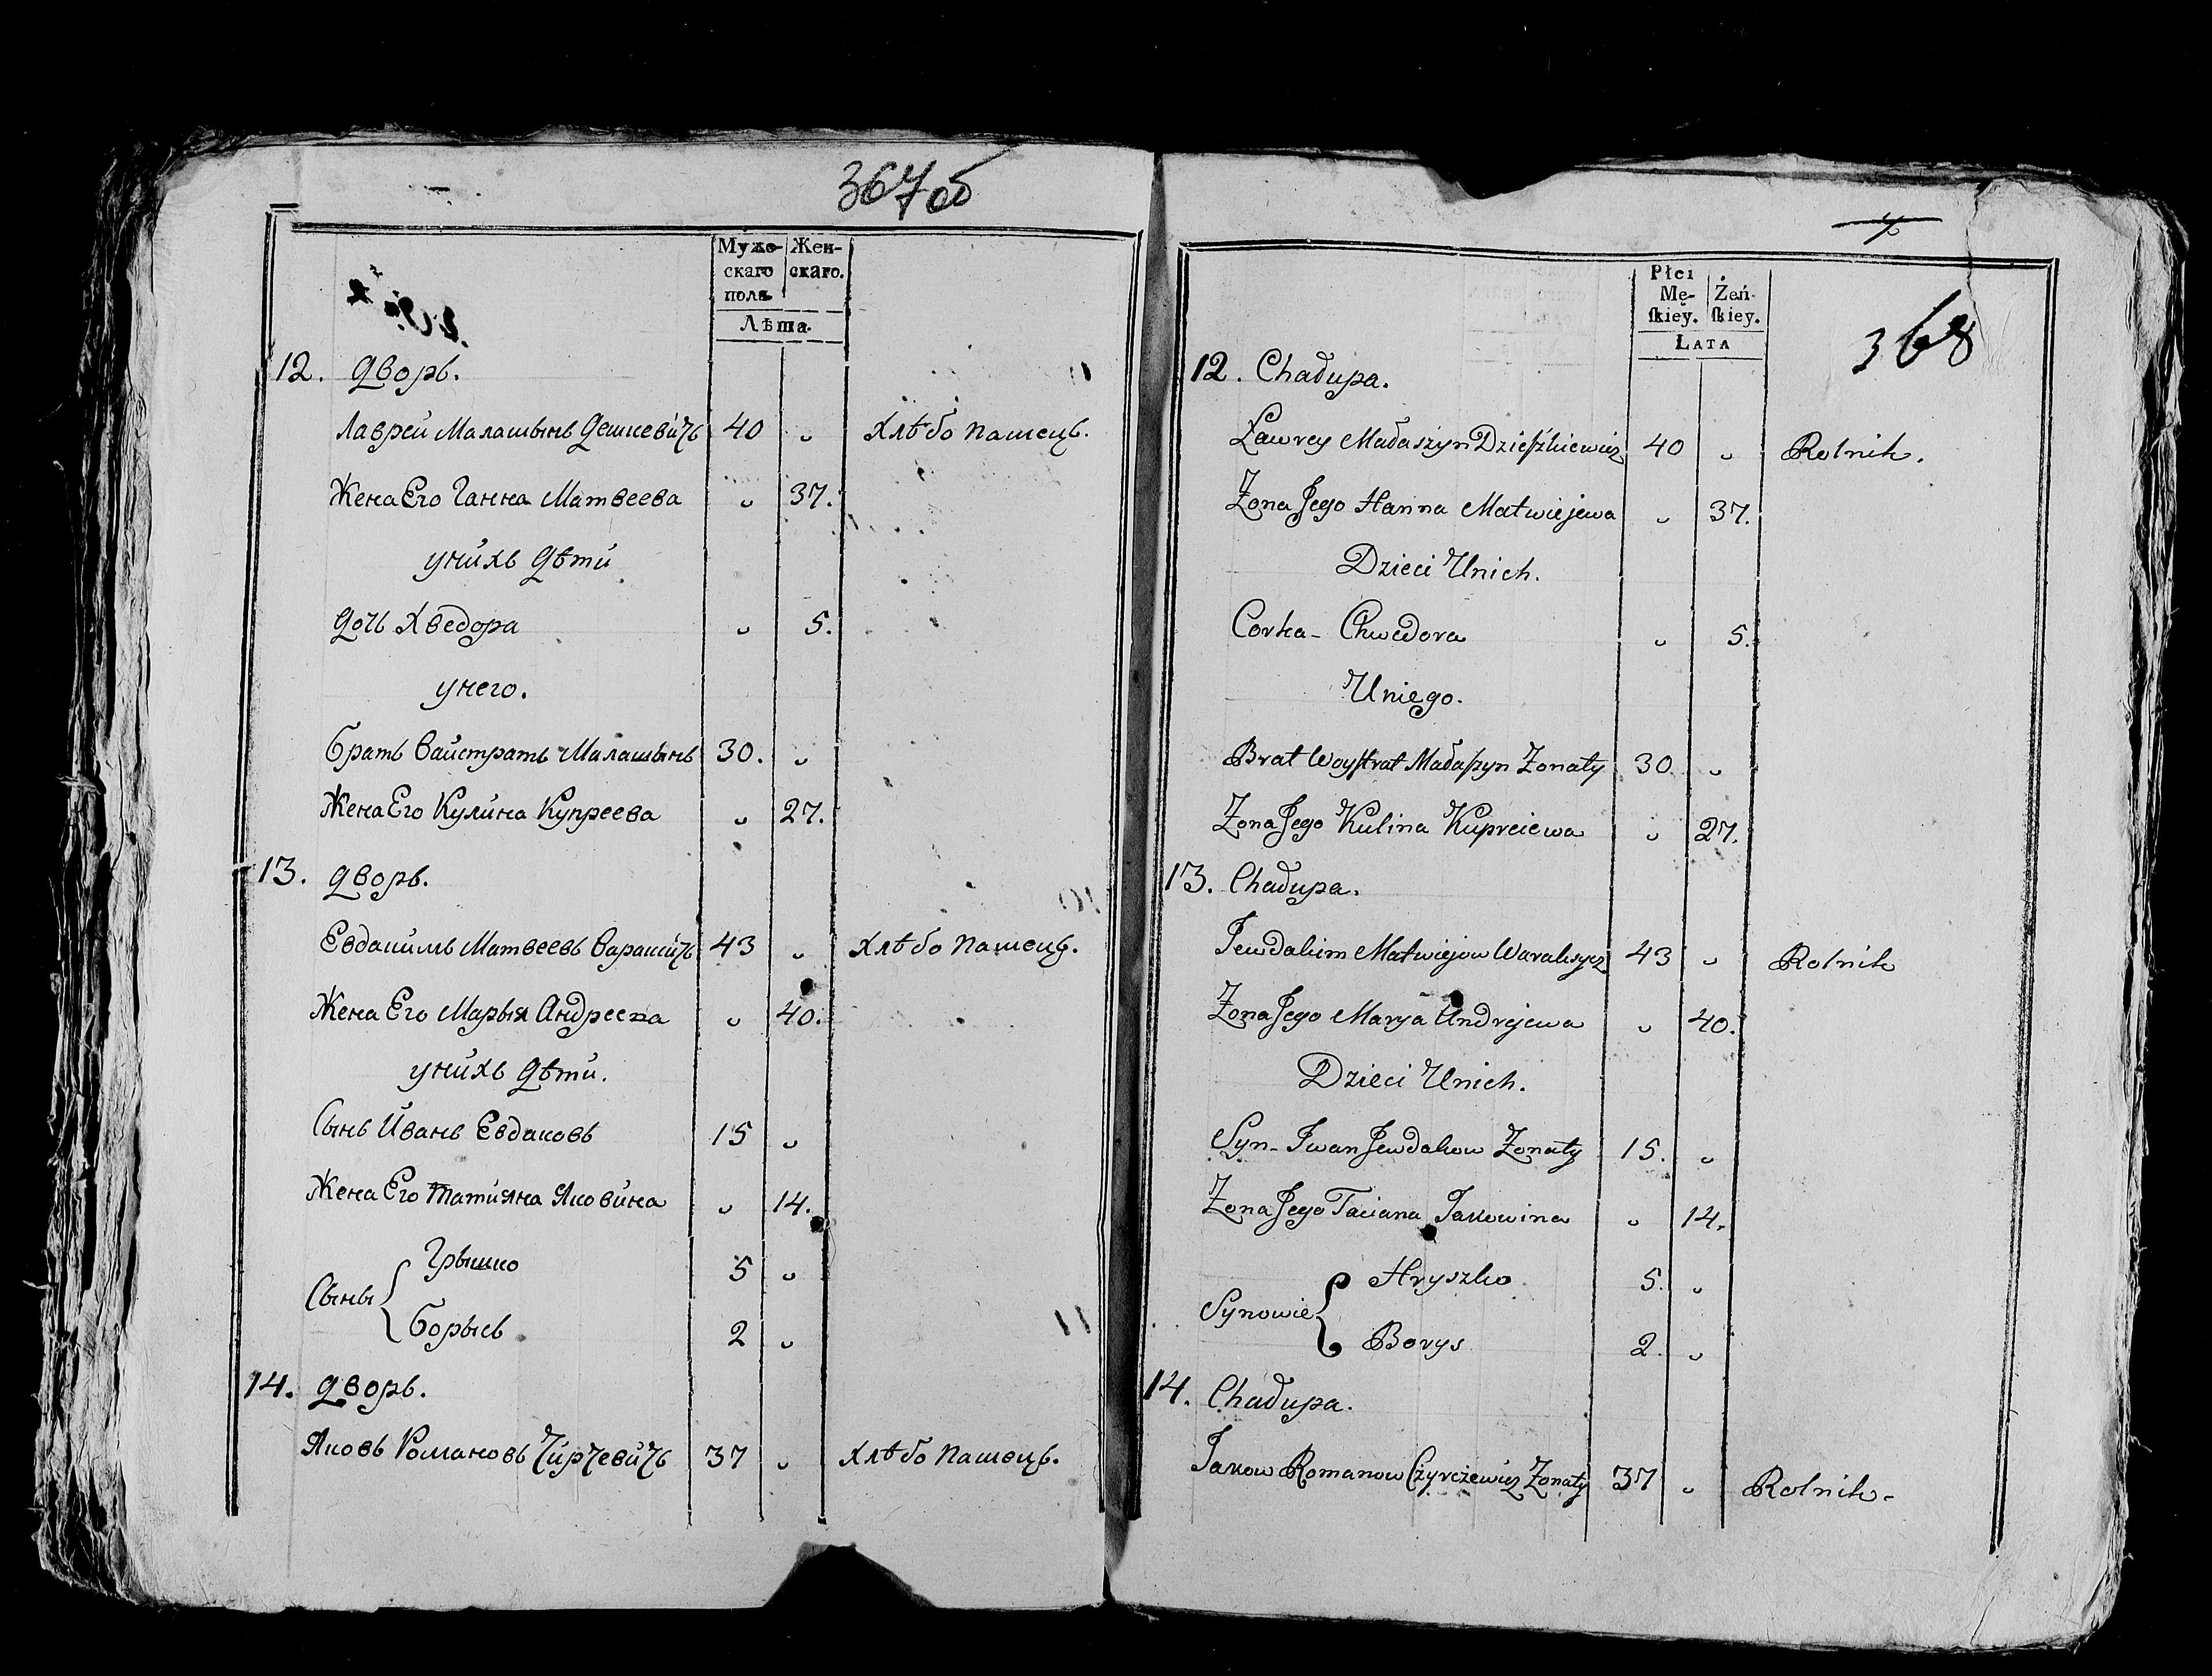 367об
Мужескаго пола
Женскаго.
Лѣта.
12. Дворъ.
Лаврей Малашынъ Дешкевичь 40 „ Хлѣбо пашецъ.
Жена Его Ганна Матвеева „ 37.
у нихъ Дѣти
Дочь Хведора „ 5.
у него.
братъ Вайстратъ Малашынъ 30. „
Жена Его Кулина Купреева „ 27.
13. Дворъ.
Евдакимъ Матвеевъ 43 „ Хлѣбо пашецъ.
Жена Его Марья Андреева „ 40.
у нихъ Дѣти.
Сынъ Иванъ Евдаковъ 15 „
Жена Его Татияна Яковина „ 14.
Сыны { Грышко 5 „
Борысъ 2 „
14. Дворъ.
Яковъ Романовъ Чирчевичь 37 „ Хлѣбо пашецъ.
368
Płci Męskiey.
Żeńskiey.
Lata
12. Chałupa.
Ławrey Małaszyn Dzieszkiewicz 40 „ Rolnik.
Żona Jego Hanna Matwiejewa „ 37.
Dzieci Unich.
Corka - Chwedora „ 5.
Uniego.
Brat Woystrat Małaszyn Żonaty 30 „
Żona Jego Kulina Kupreiewa „ 27.
13. Chałupa.
Jewdakim Matwiejow 43 „ Rolnik
Żona Jego Marya Andrejewa „ 40.
Dzieci Unich.
Syn - Iwan Jewdakow Żonaty 15. „
Żona Jego Taciana Jakowina „ 14.
Synowie { Hryszko 5. „
Borys 2. „
14. Chałupa.
Jakow Romanow Czyrczewicz Żonaty 37 „ Rolnik.